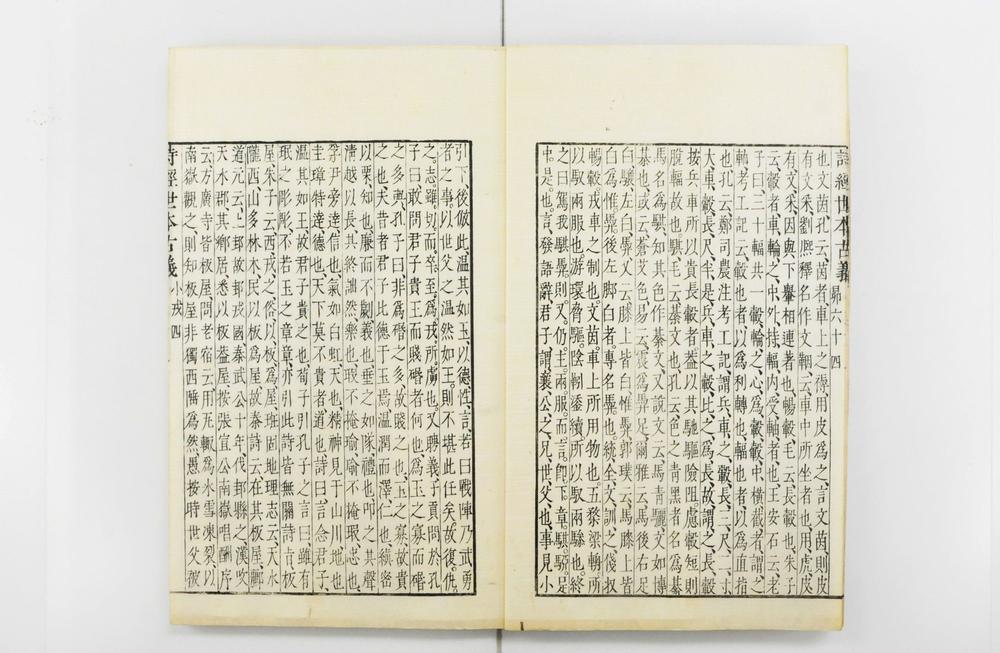 詩經世本古義 昴六十四
也文茵孔云茵者車上之褥用皮爲之言文茵則皮
有文采劉熙釋名作文鞇云車中所坐者也用虎皮
有文采因與下轝相連著也暢轂毛云長轂也朱子
云轂者車輪之中外持輻內受軸者也王安石云老
子曰三十輻共一轂輪之心爲轂轂中橫截者謂之
軸考工記云轂也者以爲利轉也輻也者以爲直指
也孔云鄭司農注考工記謂兵車之轂長三尺二寸
大車轂長尺半是兵車之轂比之爲長故謂之長轂
按兵車所以貴長轂者蓋以其馳驅險阻處轂短則
脫輻故也騏毛云綦文也孔云色之青黑者名爲綦
馬名爲騏知其色作綦文又說文云馬青驪文如博
綦也或云蒼艾色易云震爲馵足爾雅云馬後右足
白驤左白馵後丈云膝上皆白惟馵郭璞云馬膝上皆
白爲惟馵後左脚白者專名馵也統全文言之俴收
暢轂戎車之制也文茵車上所用物也五楘梁輈所
以馭兩服也游環脅驅陰靷鋈續所以馭兩驂也終
之曰駕我騏馵則又仍主兩服而言卽下章騏騮是
中是也言發語辭君子謂襄公之兄世父也事見小
引下後倣此溫其如玉以德性言若曰戰陣乃武勇
者之事以世父之溫然如玉則不堪此任矣故復仇
之志雖切而卒至爲戎所虜也又聘義子貢問於孔
子曰敢問君子貴玉而賤碈者何也爲玉之寡而碈
之多與孔子曰非爲碈之多故賤之也玉之寡故貴
之也夫昔者君子比德于玉焉溫潤而澤仁也縝密
以栗知也廉而不劌義也垂之如隊禮也叩之其聲
清越以長其終詘然樂也瑕不掩瑜瑜不掩瑕忠也
孚尹旁達信也氣如白虹天也精神見于山川地也
圭璋特達德也天下莫不貴者道也詩曰言念君子
溫其如玉故君子貴之也荀子引孔子之言曰雖有
珉之彫彫不若玉之章章亦引此詩皆無關詩旨板
屋朱子云西戎之俗以板爲屋班固地理志云天水
隴西山多林木民以板爲屋故秦詩云在其板屋酈
道元云上邽故邽戎國秦武公十年伐邽縣之漢
天水郡其鄉居悉以板蓋屋按張宜公南嶽唱酬序
云方廣寺皆板屋問老宿云用瓦輒爲氷雪凍裂以
南嶽觀之則知板屋非獨西陲爲然愚按時世父被
詩經世本古義 小戎四